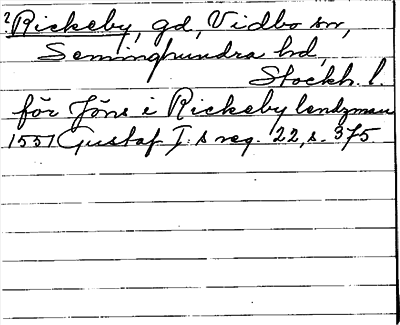 2 Rickeby, gd, Vidbo sn,
Seminghundra hd,
Stockh. l.
för Jöns i Rickeby lendzman
1551 Gustaf I:s reg. 22, s. 375